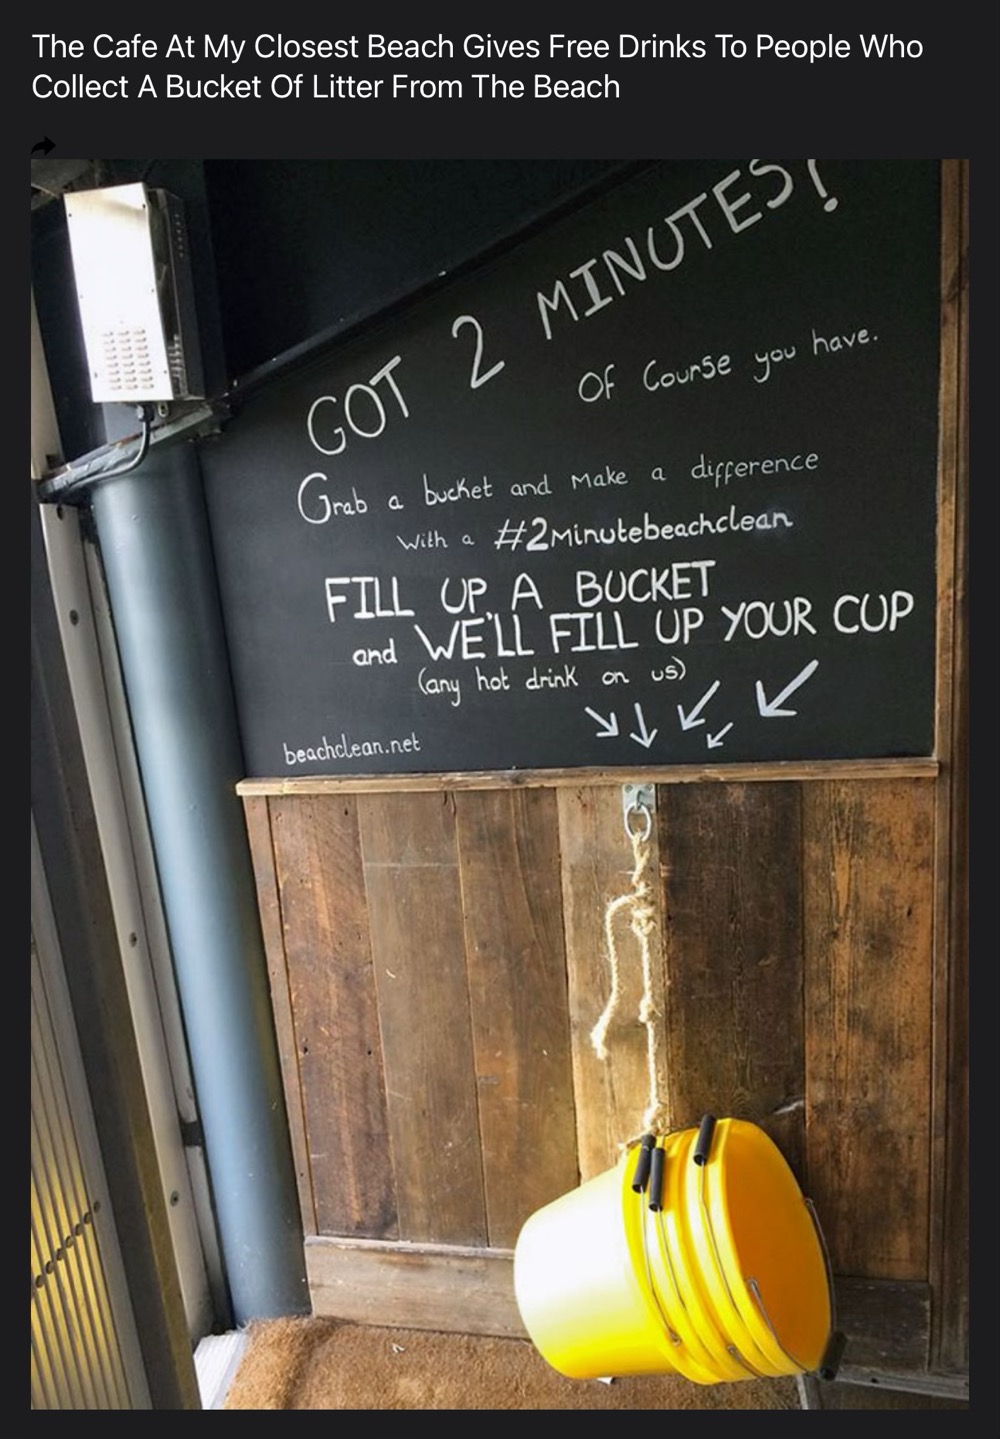 The Cafe At My Closest Beach Gives Free Drinks To People Who
Collect A Bucket Of Litter From The Beach
GOT 2 MINUTES?
OF Course you have.
Grab a bucket and make a difference
with a #2Minutebeachclean
FILL UP A BUCKET
and WE'LL FILL UP YOUR CUP
(any hot drink on us)
beachclean.net